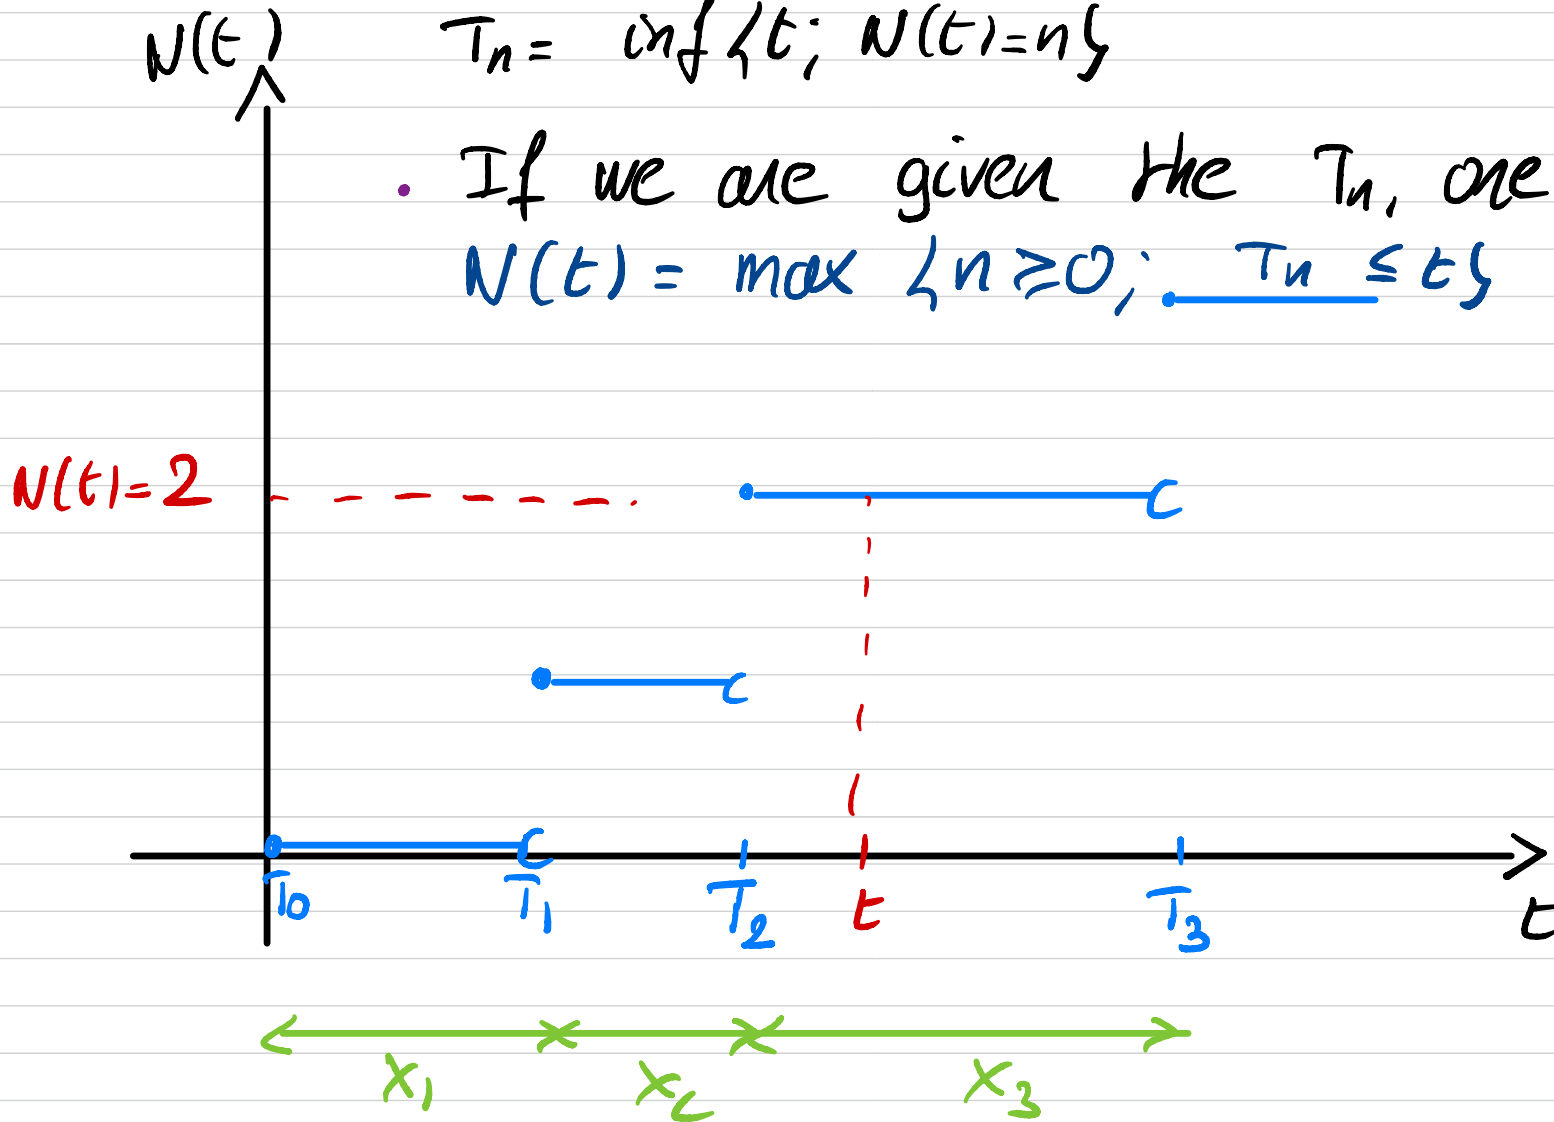 N(t) Tn = inf {t; N(t)=n}
• If we are given the Tn, one
N(t) = max {n ≥ 0; Tn ≤ t}
N(t)=2
T0 T1 T2 t T3 t
X1 X2 X3